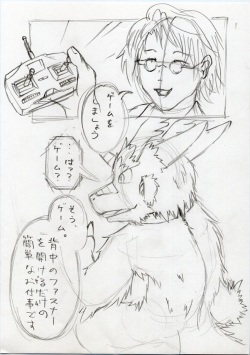 ゲームを
しましょう
…はァ?
ゲーム…?
そう、
ゲーム。
背中のファスナー
を開けるだけの
簡単なお仕事です